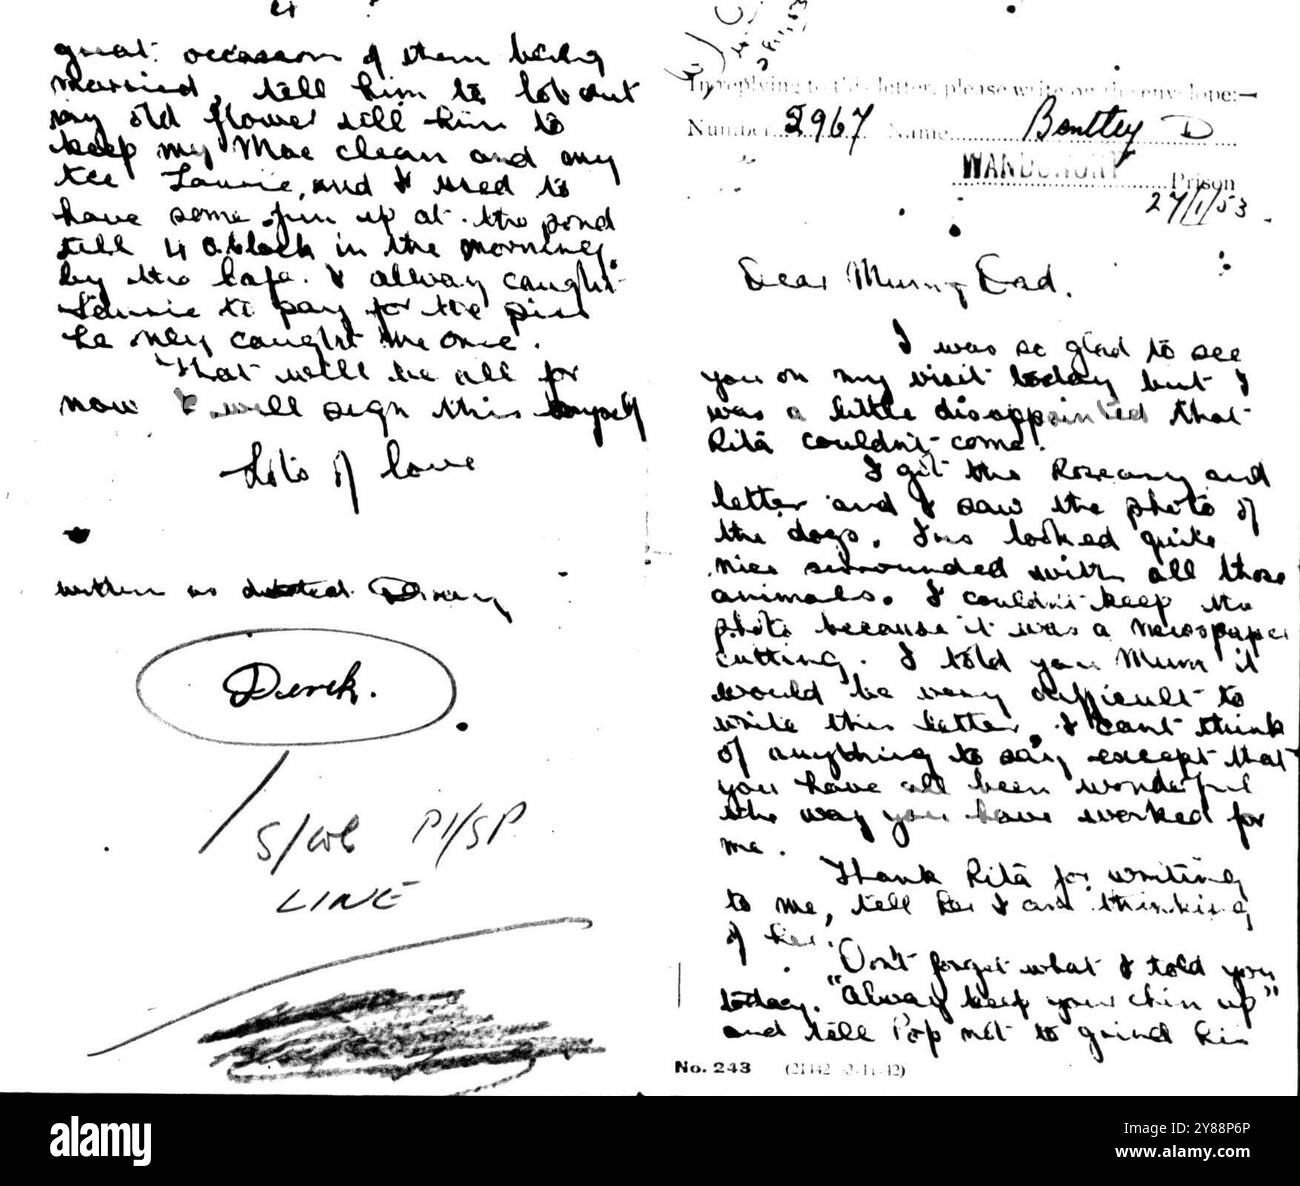 4
great occasson of them being
married, tell him to lob out
my old flower tell him to
keep my Mac clean and my
tee Laurie, and I used to
have some fun up at the pond
till 4 o.block in the morning
by the Cafe. I alway caught
Laurie to pay for the pies
he ney caught me once.
That will be all for
now I will sign this myself
Lots of love
written as dictated
Derek.
P1/SP
LINE
In replying to this letter, please write on the envelope:—
Number 2967 Name Bentley D
WANDSWORTH Prison
27/1/53
Dear Mum, Dad,
I was so glad to see
you on my visit today but I
was a little disappointed that
Rita couldn't come!
I got the Roseary and
letter and I saw the photo of
the dogs. looked quite
nice surrounded with all those
animals. I couldn't keep the
photo because it was a newspaper
cutting. I told you Mum it
would be very difficult to
write this letter, I can't think
of anything to say except that
you have all been wonderful
the way you have worked for
me.
Thank Rita for writing
to me, tell her I am thinking
of her.
Don't forget what I told you
today. "Alway keep your chin up"
and tell Pop not to grind his
No. 243 (21442 2-11-42)
alamy
Image ID: Y88P6P
www.alamy.com